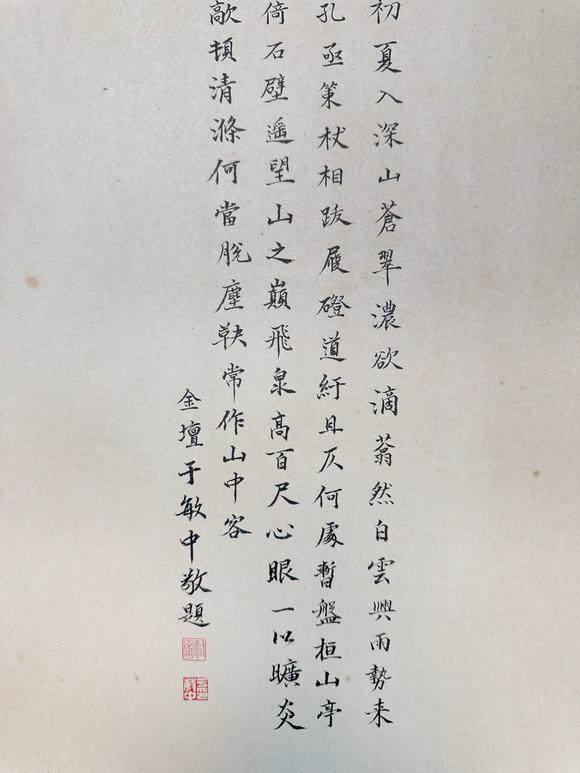 初夏入深山蒼翠濃欲滴蓊然白雲興雨勢来
孔亟策杖相跋履磴道紆且仄何處暫盤桓山亭
倚石壁遥望山之巔飛泉高百尺心眼一以曠炎
歊頓清滌何當脫塵鞅常作山中客
金壇于敏中敬題